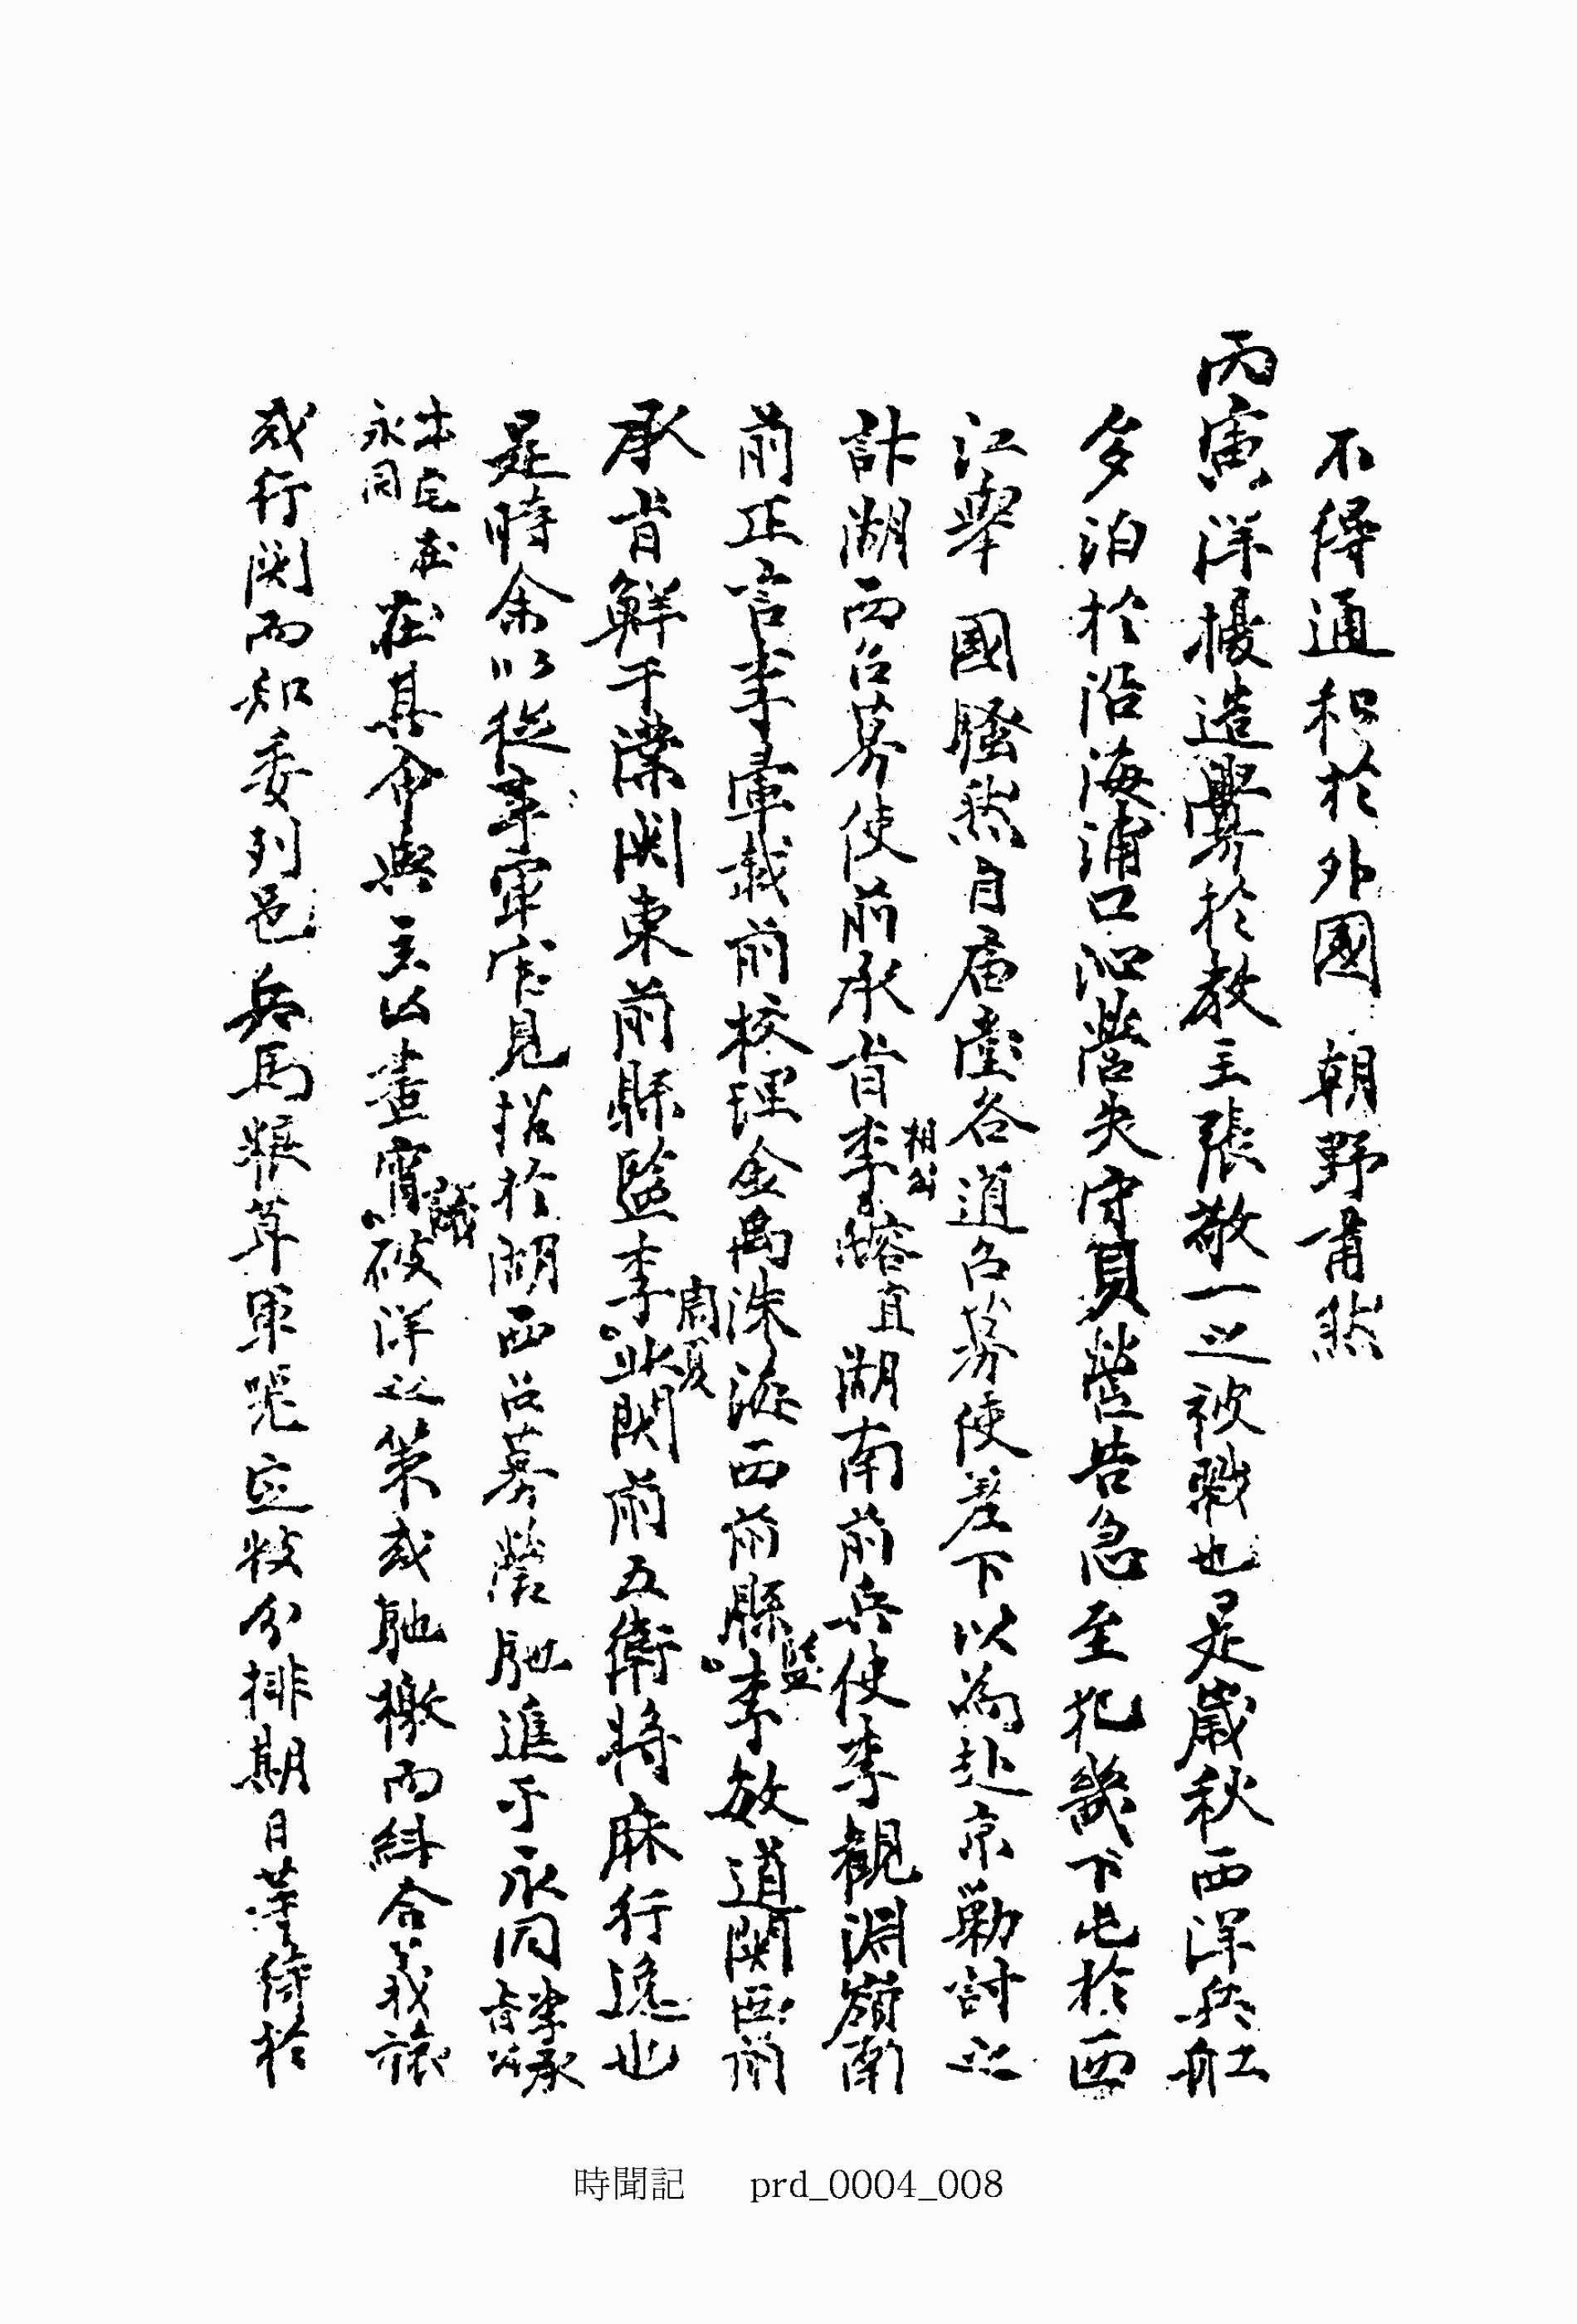 不得通和於外國 朝野肅然
丙寅洋擾造釁於教主張敬一之被戮也是歲秋西洋兵舡
多泊於沿海浦口沁營失守貝營告急至犯畿下屯於西
江擧 國騷然自廟堂各道召募使差下以為赴京勦討之
計湖西召募使前承旨李相公溶直湖南前兵使李觀淵嶺南
前正言李彙載前校理金禹洙海西前縣監李敎道関西前
承旨鮮于澿関東前縣監李周夏北関前五衛將麻行逸也
是時余以從事軍官見招於湖西召募營馳進于永同李承旨公
本宅在永同 在其令與主公晝宵議破洋之策或馳檄而糾合義旅
或行関而知委列邑兵馬粮草軍器定數分排期日等待於
時聞記 prd_0004_008